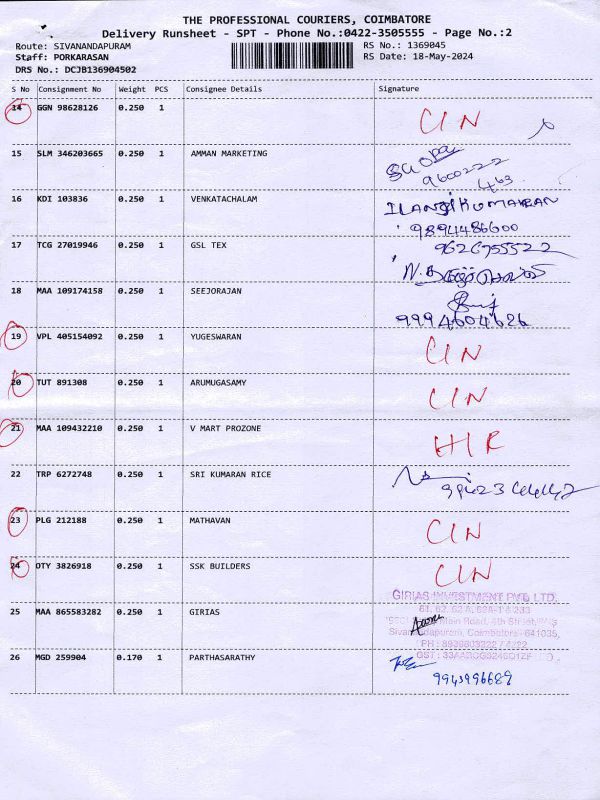 THE PROFESSIONAL COURIERS, COIMBATORE
Delivery Runsheet - SPT - Phone No.:0422-3505555 - Page No.:2
Route: SIVANANDAPURAM RS No.: 1369045
Staff: PORKARASAN RS Date: 18-May-2024
DRS No.: DCJB136904502
S No Consignment No Weight PCS Consignee Details Signature
14 GGN 98628126 0.250 1 CIN
15 SLM 346203665 0.250 1 AMMAN MARKETING
9600222
463
16 KDI 103836 0.250 1 VENKATACHALAM ILANGIKUMARAN
9894486600
17 TCG 27019946 0.250 1 GSL TEX 9626755522
18 MAA 109174158 0.250 1 SEEJORAJAN
9994604626
19 VPL 405154092 0.250 1 YUGESWARAN CIN
20 TUT 891308 0.250 1 ARUMUGASAMY CIN
21 MAA 109432210 0.250 1 V MART PROZONE HIR
22 TRP 6272748 0.250 1 SRI KUMARAN RICE
23 PLG 212188 0.250 1 MATHAVAN CIN
24 OTY 3826918 0.250 1 SSK BUILDERS CIN
GIRIAS INVESTMENT PVT LTD.
25 MAA 865583282 0.250 1 GIRIAS
Main Road, 4th Street,
Sivanandapuram, Coimbatore - 641035,
26 MGD 259904 0.170 1 PARTHASARATHY
9943996689